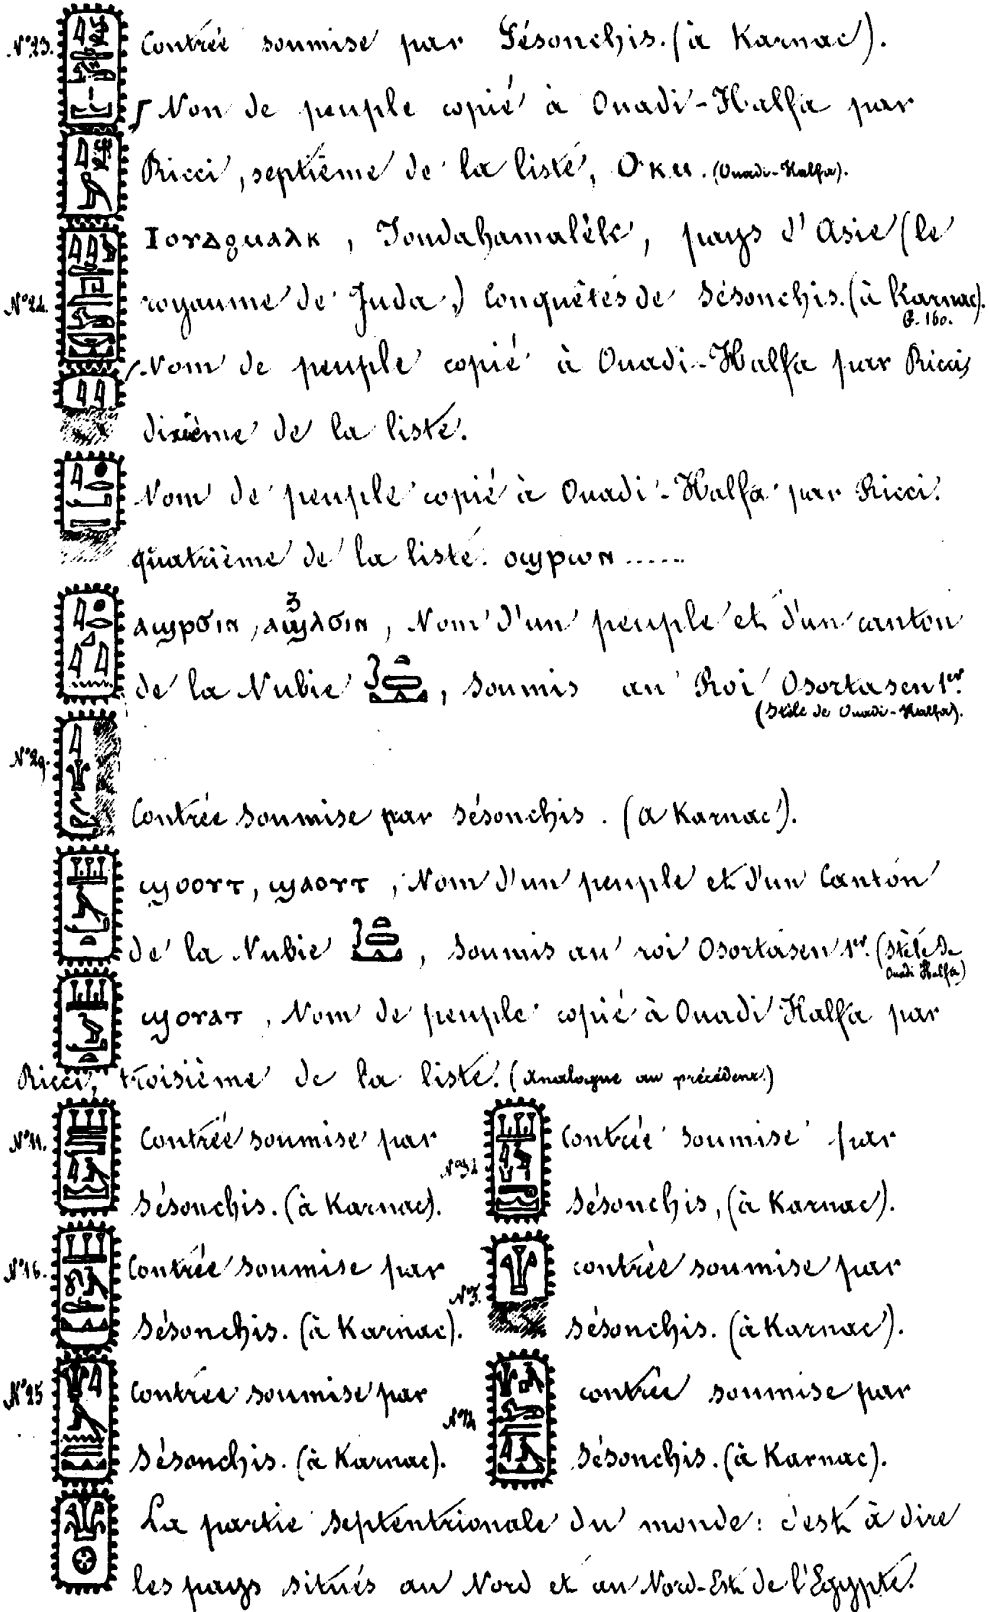 N°23. Contrée soumise par Sésonchis. (à Karnac).
Nom de peuple copié à Ouadi-Halfa par
Ricci, septième de la liste, Oκυ. (Ouadi-Halfa).
Ⲓⲟⲩⲇϩⲙⲁⲗⲕ, Joudahamalék, pays d'Asie (le
N°24. royaume de Juda,) Conquêtes de Sésonchis. (à Karnac).
G. 160.
Nom de peuple copié à Ouadi-Halfa par Ricci,
dixième de la liste.
Nom de peuple copié à Ouadi-Halfa par Ricci.
quatrième de la liste. ⲟϣⲣⲱⲛ ......
ⲁϣⲣϭⲓⲛ, ⲁϣⲗϭⲓⲛ, Nom d'un peuple et d'un canton
de la Nubie, soumis au Roi Osortasen 1er.
(Stèle de Ouadi-Halfa).
N°29.
Contrée soumise par Sésonchis. (à Karnac).
ϣⲟⲟⲩⲧ, ϣⲁⲟⲩⲧ, Nom d'un peuple et d'un Canton
de la Nubie, soumis au roi Osortasen 1er. (Stèle de
Ouadi Halfa)
ϣⲟⲩⲁⲧ, Nom de peuple copié à Ouadi Halfa par
Ricci, troisième de la liste. (Analogue au précédent.)
N°11. Contrée soumise par
Sésonchis. (à Karnac).
Contrée soumise par
Sésonchis, (à Karnac).
N°16. Contrée soumise par
Sésonchis. (à Karnac).
contrée soumise par
Sésonchis. (à Karnac).
N°25 Contrée soumise par
Sésonchis. (à Karnac).
contrée soumise par
Sésonchis. (à Karnac).
La partie septentrionale du monde: c'est à dire
les pays situés au Nord et au Nord-Est de l'Egypte.